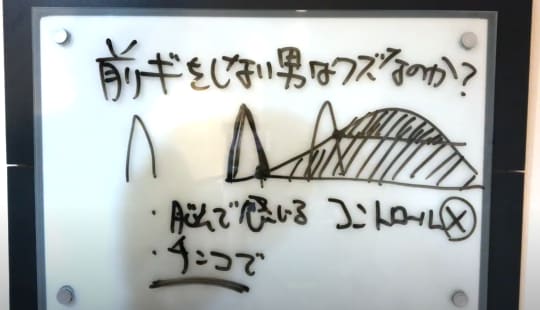 前ギをしない男はクズなのか?
・脳で感じる コントロール×
・チンコで